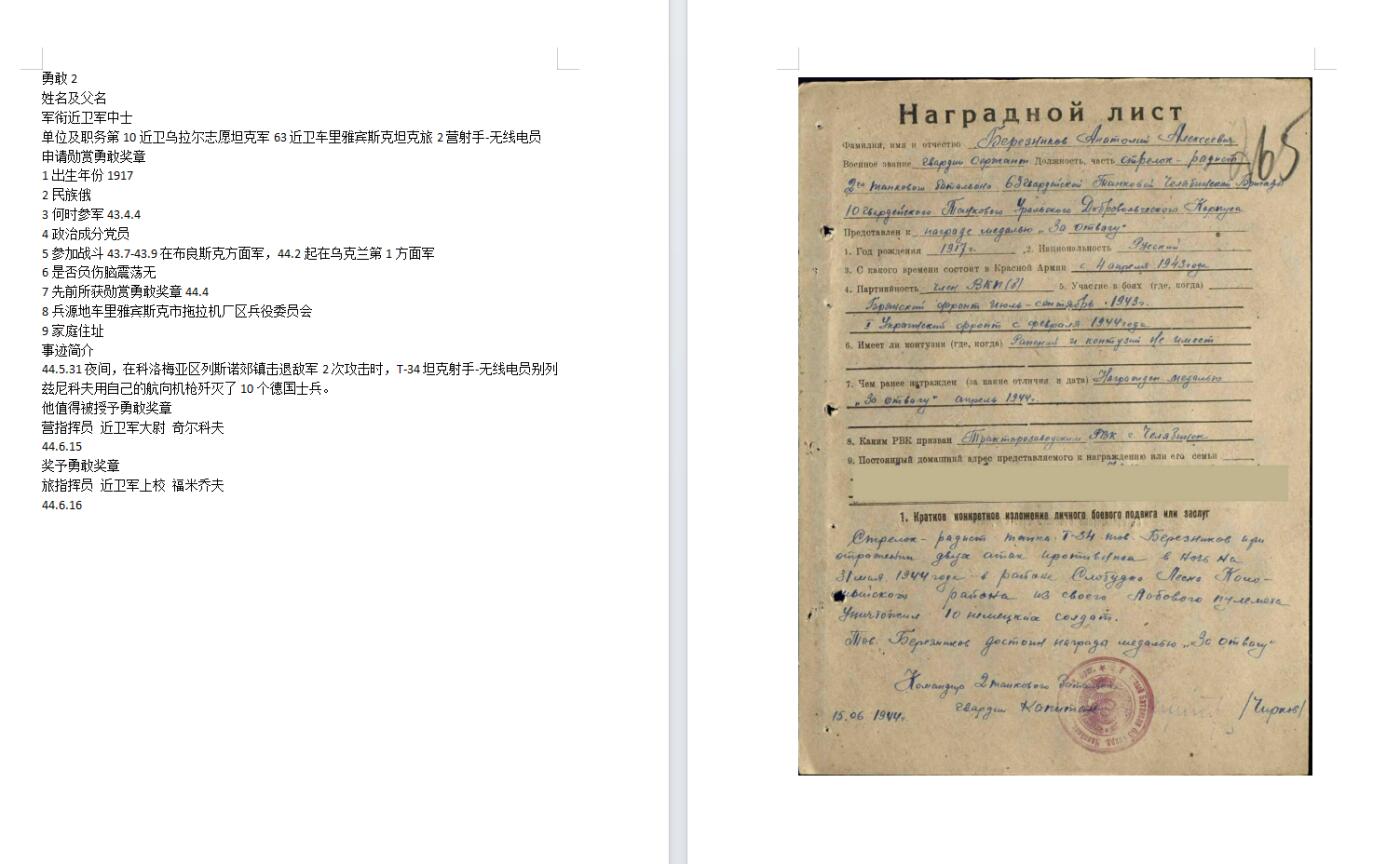 勇敢 2
姓名及父名
军衔近卫军中士
单位及职务第 10 近卫乌拉尔志愿坦克军 63 近卫车里雅宾斯克坦克旅 2 营射手-无线电员
申请勋赏勇敢奖章
1 出生年份 1917
2 民族俄
3 何时参军 43.4.4
4 政治成分党员
5 参加战斗 43.7-43.9 在布良斯克方面军，44.2 起在乌克兰第 1 方面军
6 是否负伤脑震荡无
7 先前所获勋赏勇敢奖章 44.4
8 兵源地车里雅宾斯克市拖拉机厂区兵役委员会
9 家庭住址
事迹简介
44.5.31 夜间，在科洛梅亚区列斯诺郊镇击退敌军 2 次攻击时，T-34 坦克射手-无线电员别列
兹尼科夫用自己的航向机枪歼灭了 10 个德国士兵。
他值得被授予勇敢奖章
营指挥员 近卫军大尉 奇尔科夫
44.6.15
奖予勇敢奖章
旅指挥员 近卫军上校 福米乔夫
44.6.16
Наградной лист
Фамилия, имя и отчество Березников Анатолий Алексеевич
165
Военное звание гвардии Сержант Должность, часть стрелок-радист
2го танкового батальона 63 гвардейской Танковой Челябинской Бригады
10 гвардейского Танкового Уральского Добровольческого Корпуса
Представлен к награде медалью „За отвагу"
1. Год рождения 1917г. 2. Национальность Русский
3. С какого времени состоит в Красной Армии с 4 апреля 1943 года
4. Партийность член ВКП(б) 5. Участие в боях (где, когда)
Брянский фронт июль-сентябрь 1943г.
I Украинский фронт с февраля 1944 года
6. Имеет ли контузии (где, когда) Ранений и контузий не имеет
7. Чем ранее награжден (за какие отличия и дата) Награжден медалью
„За отвагу" апрель 1944г.
8. Каким РВК призван Тракторозаводским РВК г. Челябинск
9. Постоянный домашний адрес представляемого к награждению или его семьи
1. Краткое конкретное изложение личного боевого подвига или заслуг
Стрелок-радист танка Т-34 тов. Березников при
отражении двух атак противника в ночь на
31 мая 1944 года в районе Слободка Лесна Коло-
мыйского района из своего лобового пулемета
уничтожил 10 немецких солдат.
Тов. Березников достоин награда медалью „За отвагу"
Командир 2 танкового батальона
гвардии Капитан /Чирков/
15.06 1944г.